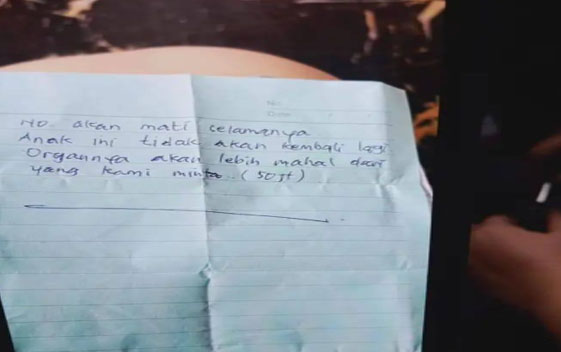 No.
HP akan mati selamanya
Anak ini tidak akan kembali lagi
Organnya akan lebih mahal dari
yang kami minta. (50jt)